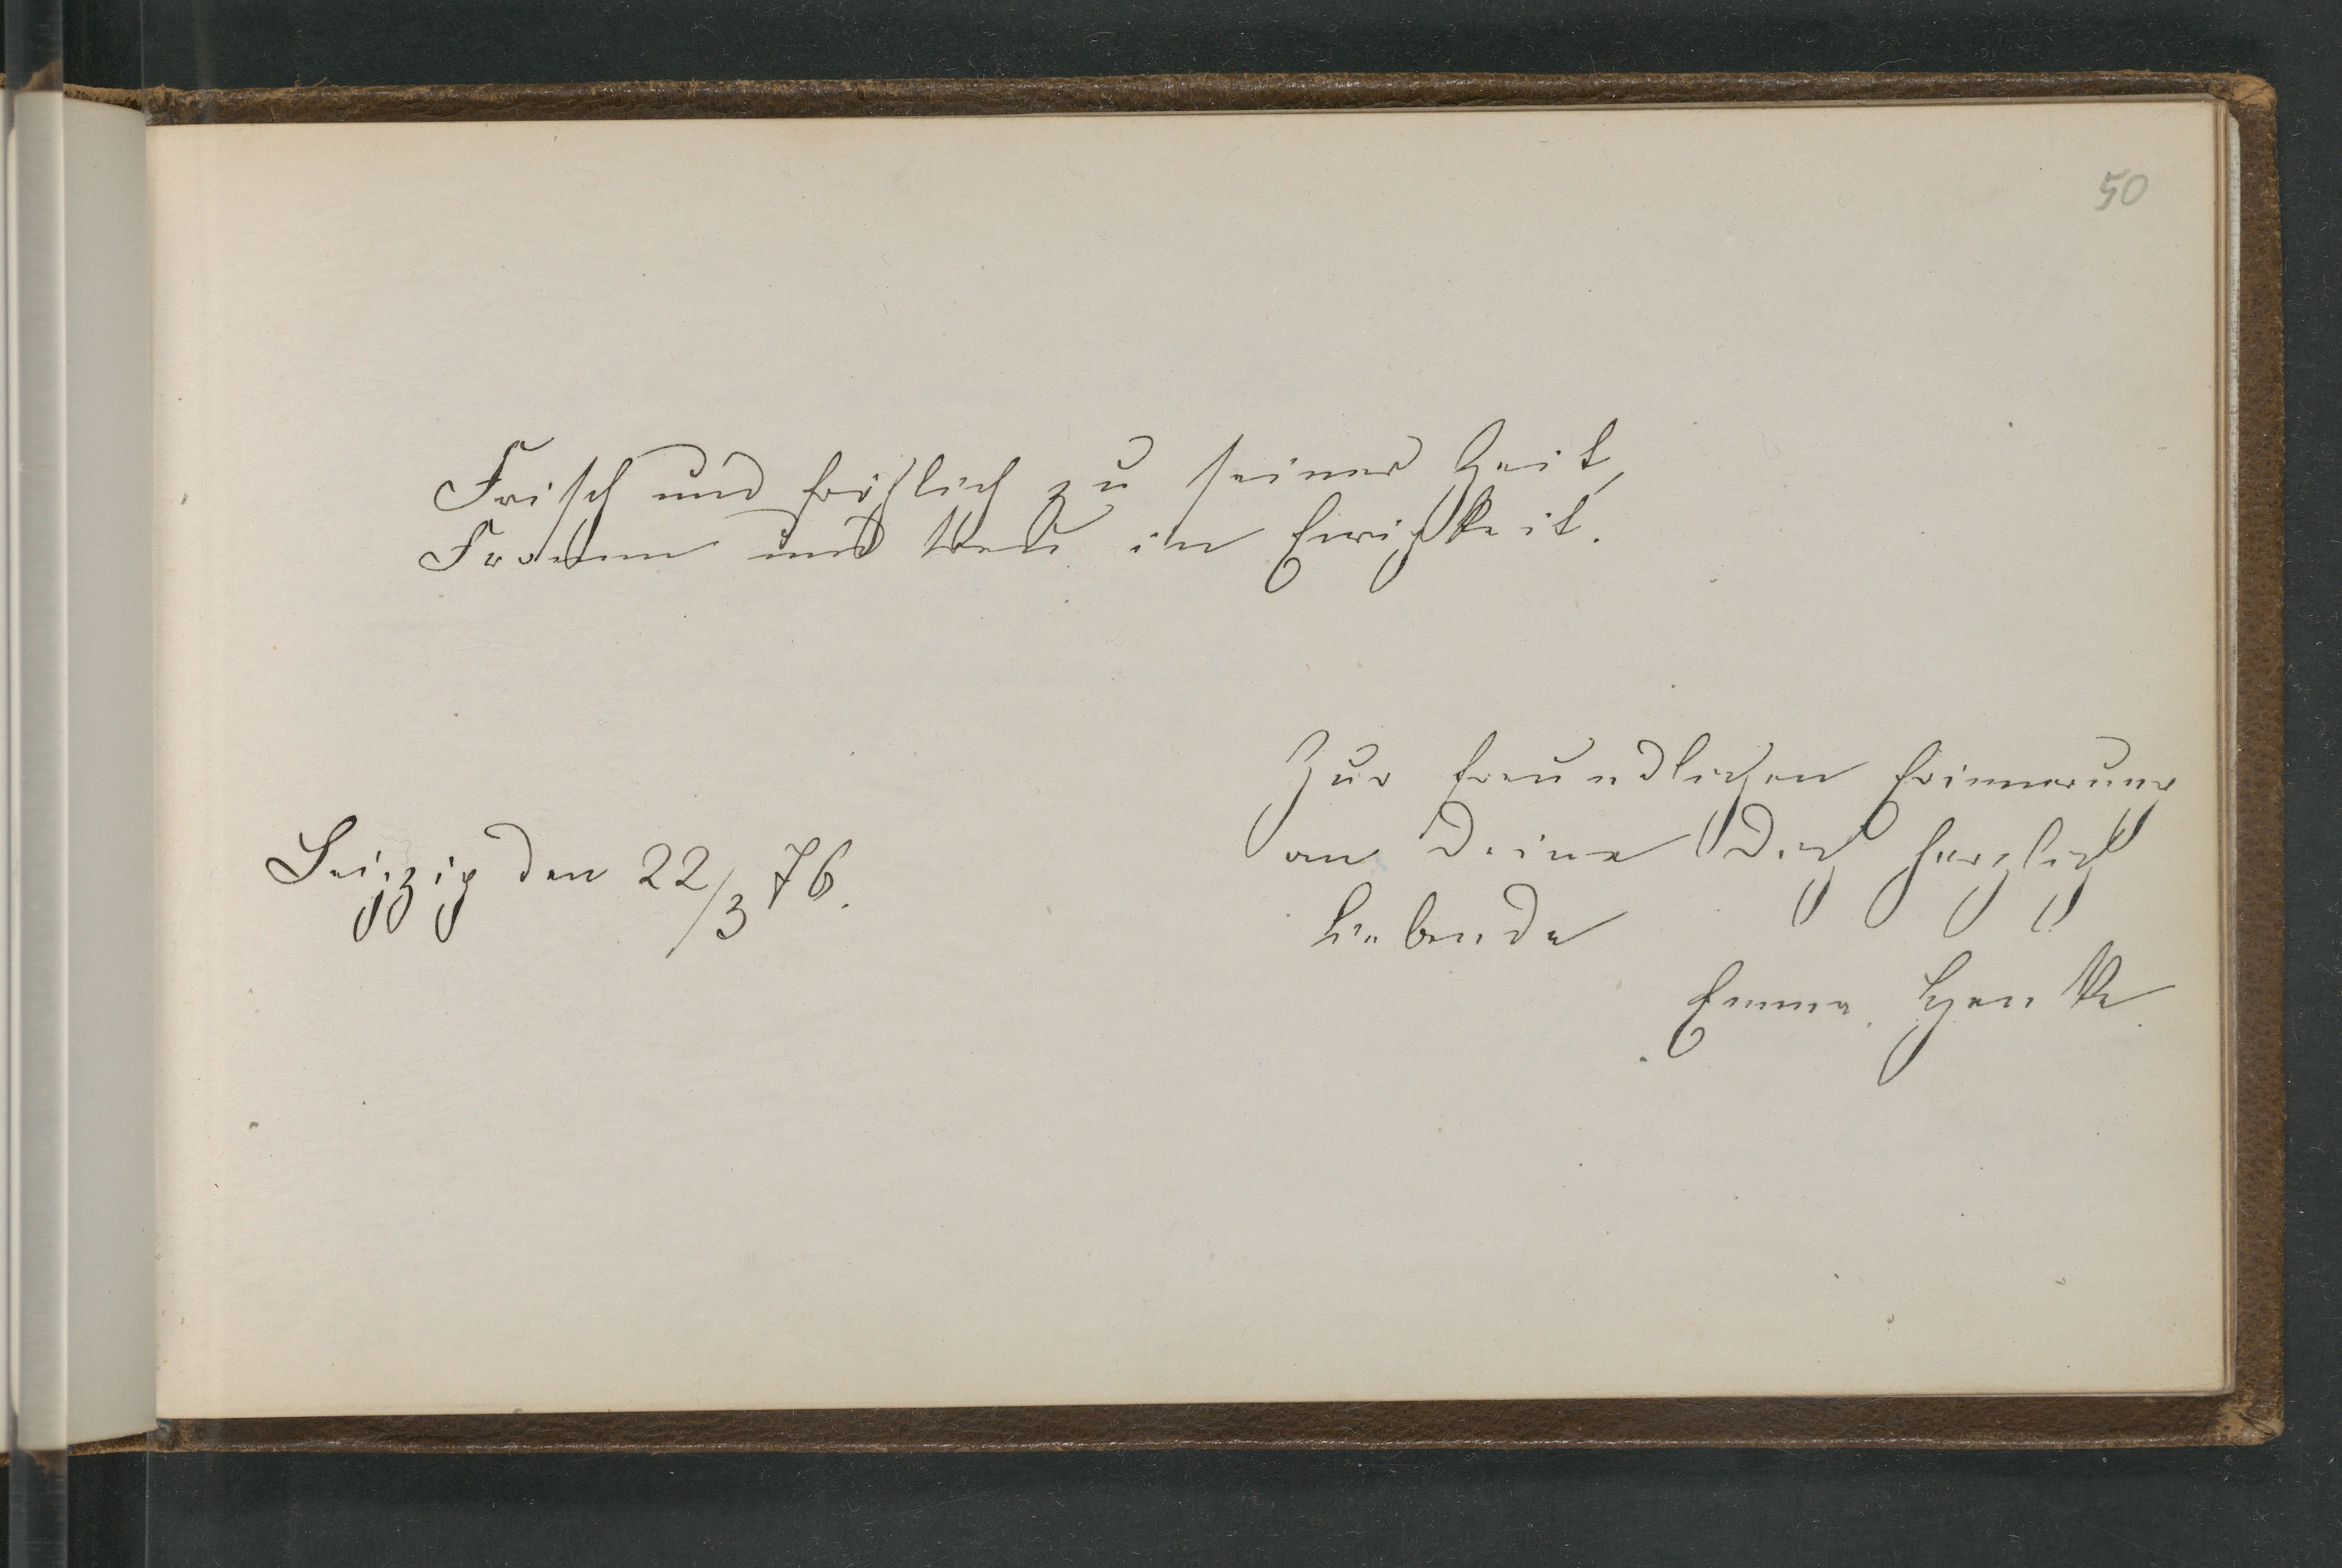 50
Frisch und fröhlich zu seiner Zeit,
Fromm und treu in Ewigkeit.
Zur freundlichen Erinnerung
an Deine Dich herzlich
liebende
Leipzig den 22/3 76.
Emma